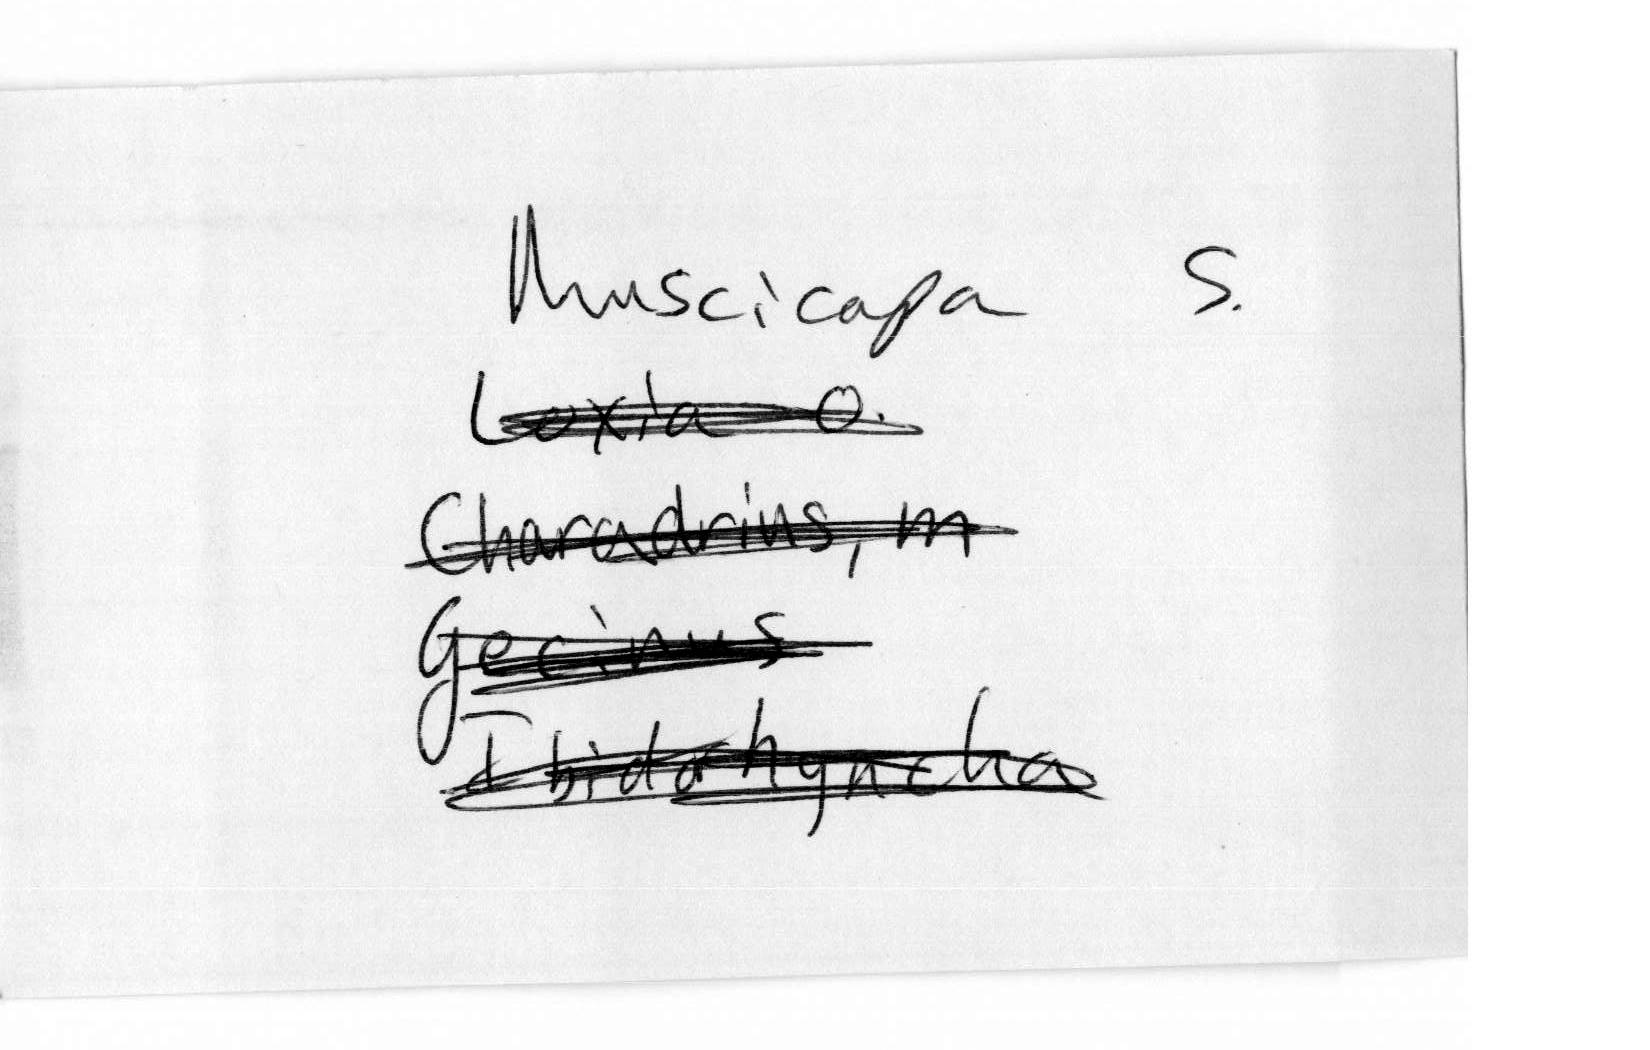 Muscicapa S.
Loxia O.
Charadrius, m
Gecinus
Ibidorhyncha